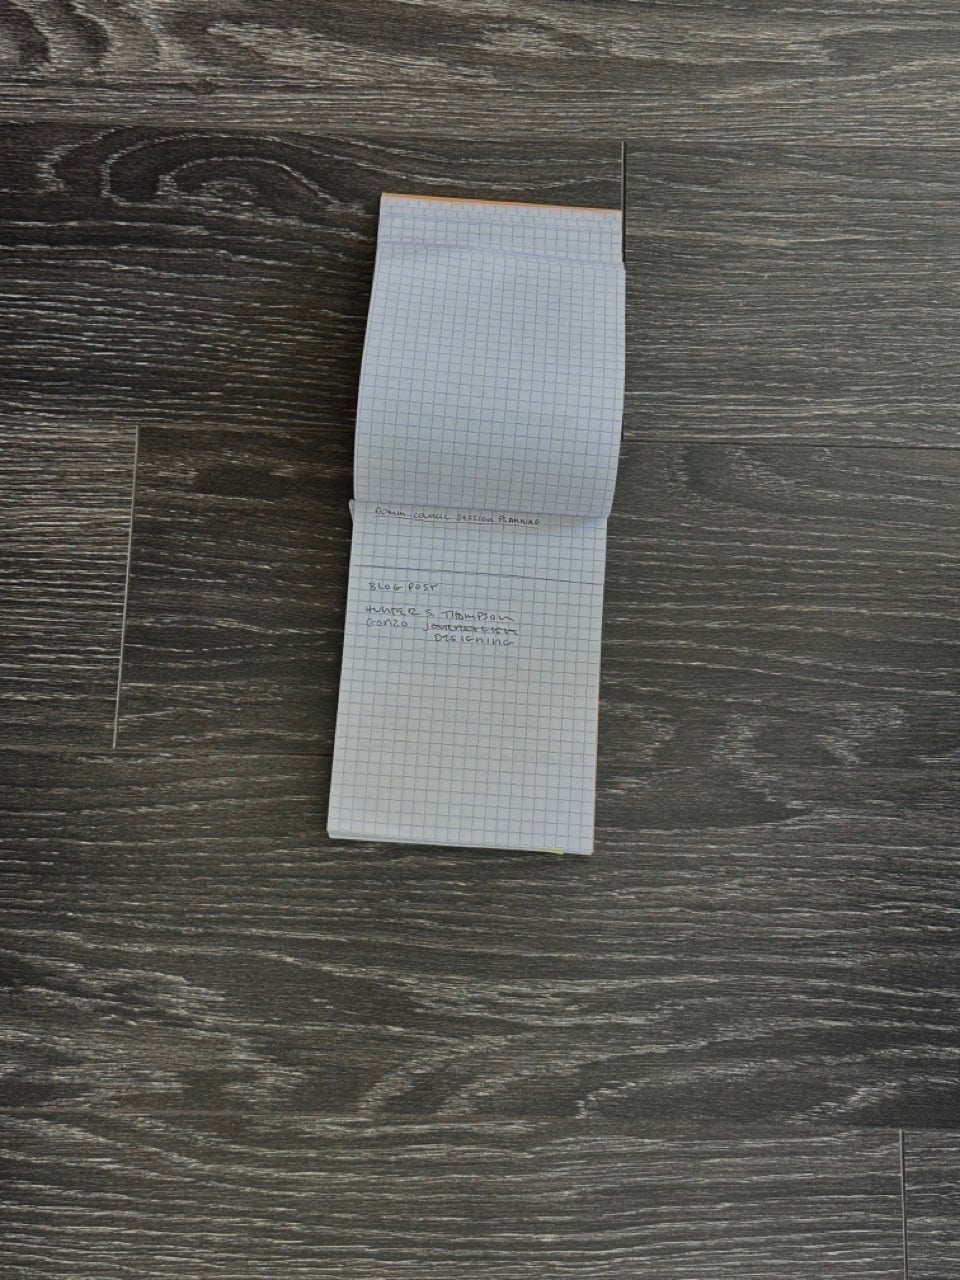 COUNCIL SESSION PLANNING
BLOG POST
HUNTER S. THOMPSON
GONZO JOURNALISM
DESIGNING